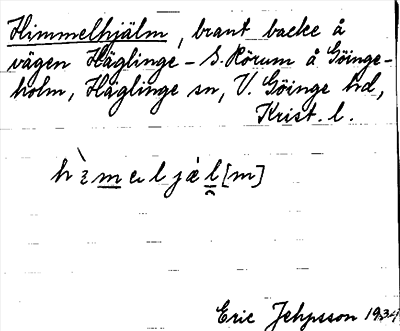 Himmelhjälm, brant backe å
vägen Häglinge – S. Rörum å Göinge-
holm, Häglinge sn, V. Göinge hd,
Krist. l.
Eric Jehpsson 1934